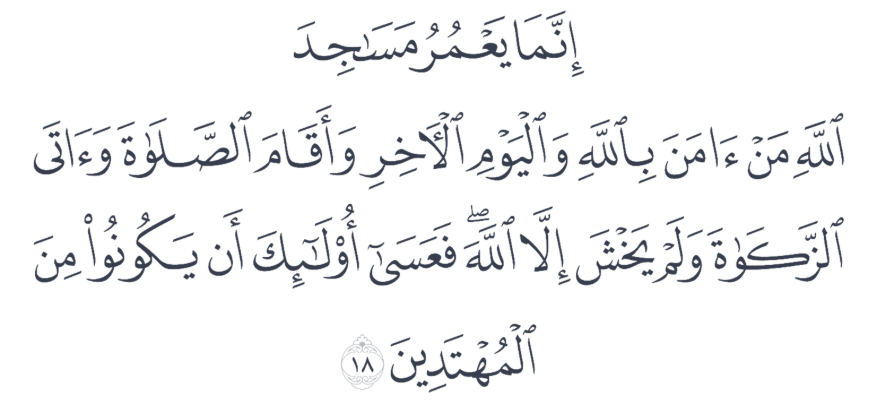 إِنَّمَا يَعۡمُرُ مَسَٰجِدَ
ٱللَّهِ مَنۡ ءَامَنَ بِٱللَّهِ وَٱلۡيَوۡمِ ٱلۡأٓخِرِ وَأَقَامَ ٱلصَّلَوٰةَ وَءَاتَى
ٱلزَّكَوٰةَ وَلَمۡ يَخۡشَ إِلَّا ٱللَّهَۖ فَعَسَىٰٓ أُوْلَٰٓئِكَ أَن يَكُونُواْ مِنَ
ٱلۡمُهۡتَدِينَ ١٨